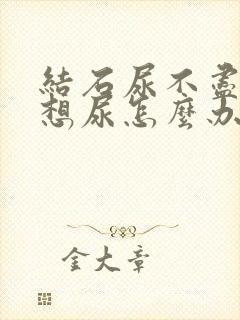 結石尿不盡
想尿怎麼办
金大章